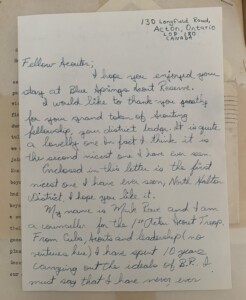 130 Longfield Road
Acton, Ontario
CANADA
Fellow Scouter:
I hope you enjoyed your
stay at Blue Springs Scout Reserve.
I would like to thank you greatly
for your grand token of Scouting
fellowship, your district badge. It is quite
a lovely one. In fact I think it is
the second nicest one I have ever seen.
Enclosed in this letter is the first
nicest one I have ever seen, North Halton
District. I hope you like it.
My name is Mike and I am
a counsellor for the 1st Acton Scout Troop.
From Cubs, Scouts and leadership (no
venturers) I have spent 10 years
carrying out the ideals of B.P. I
must say that I have never ever